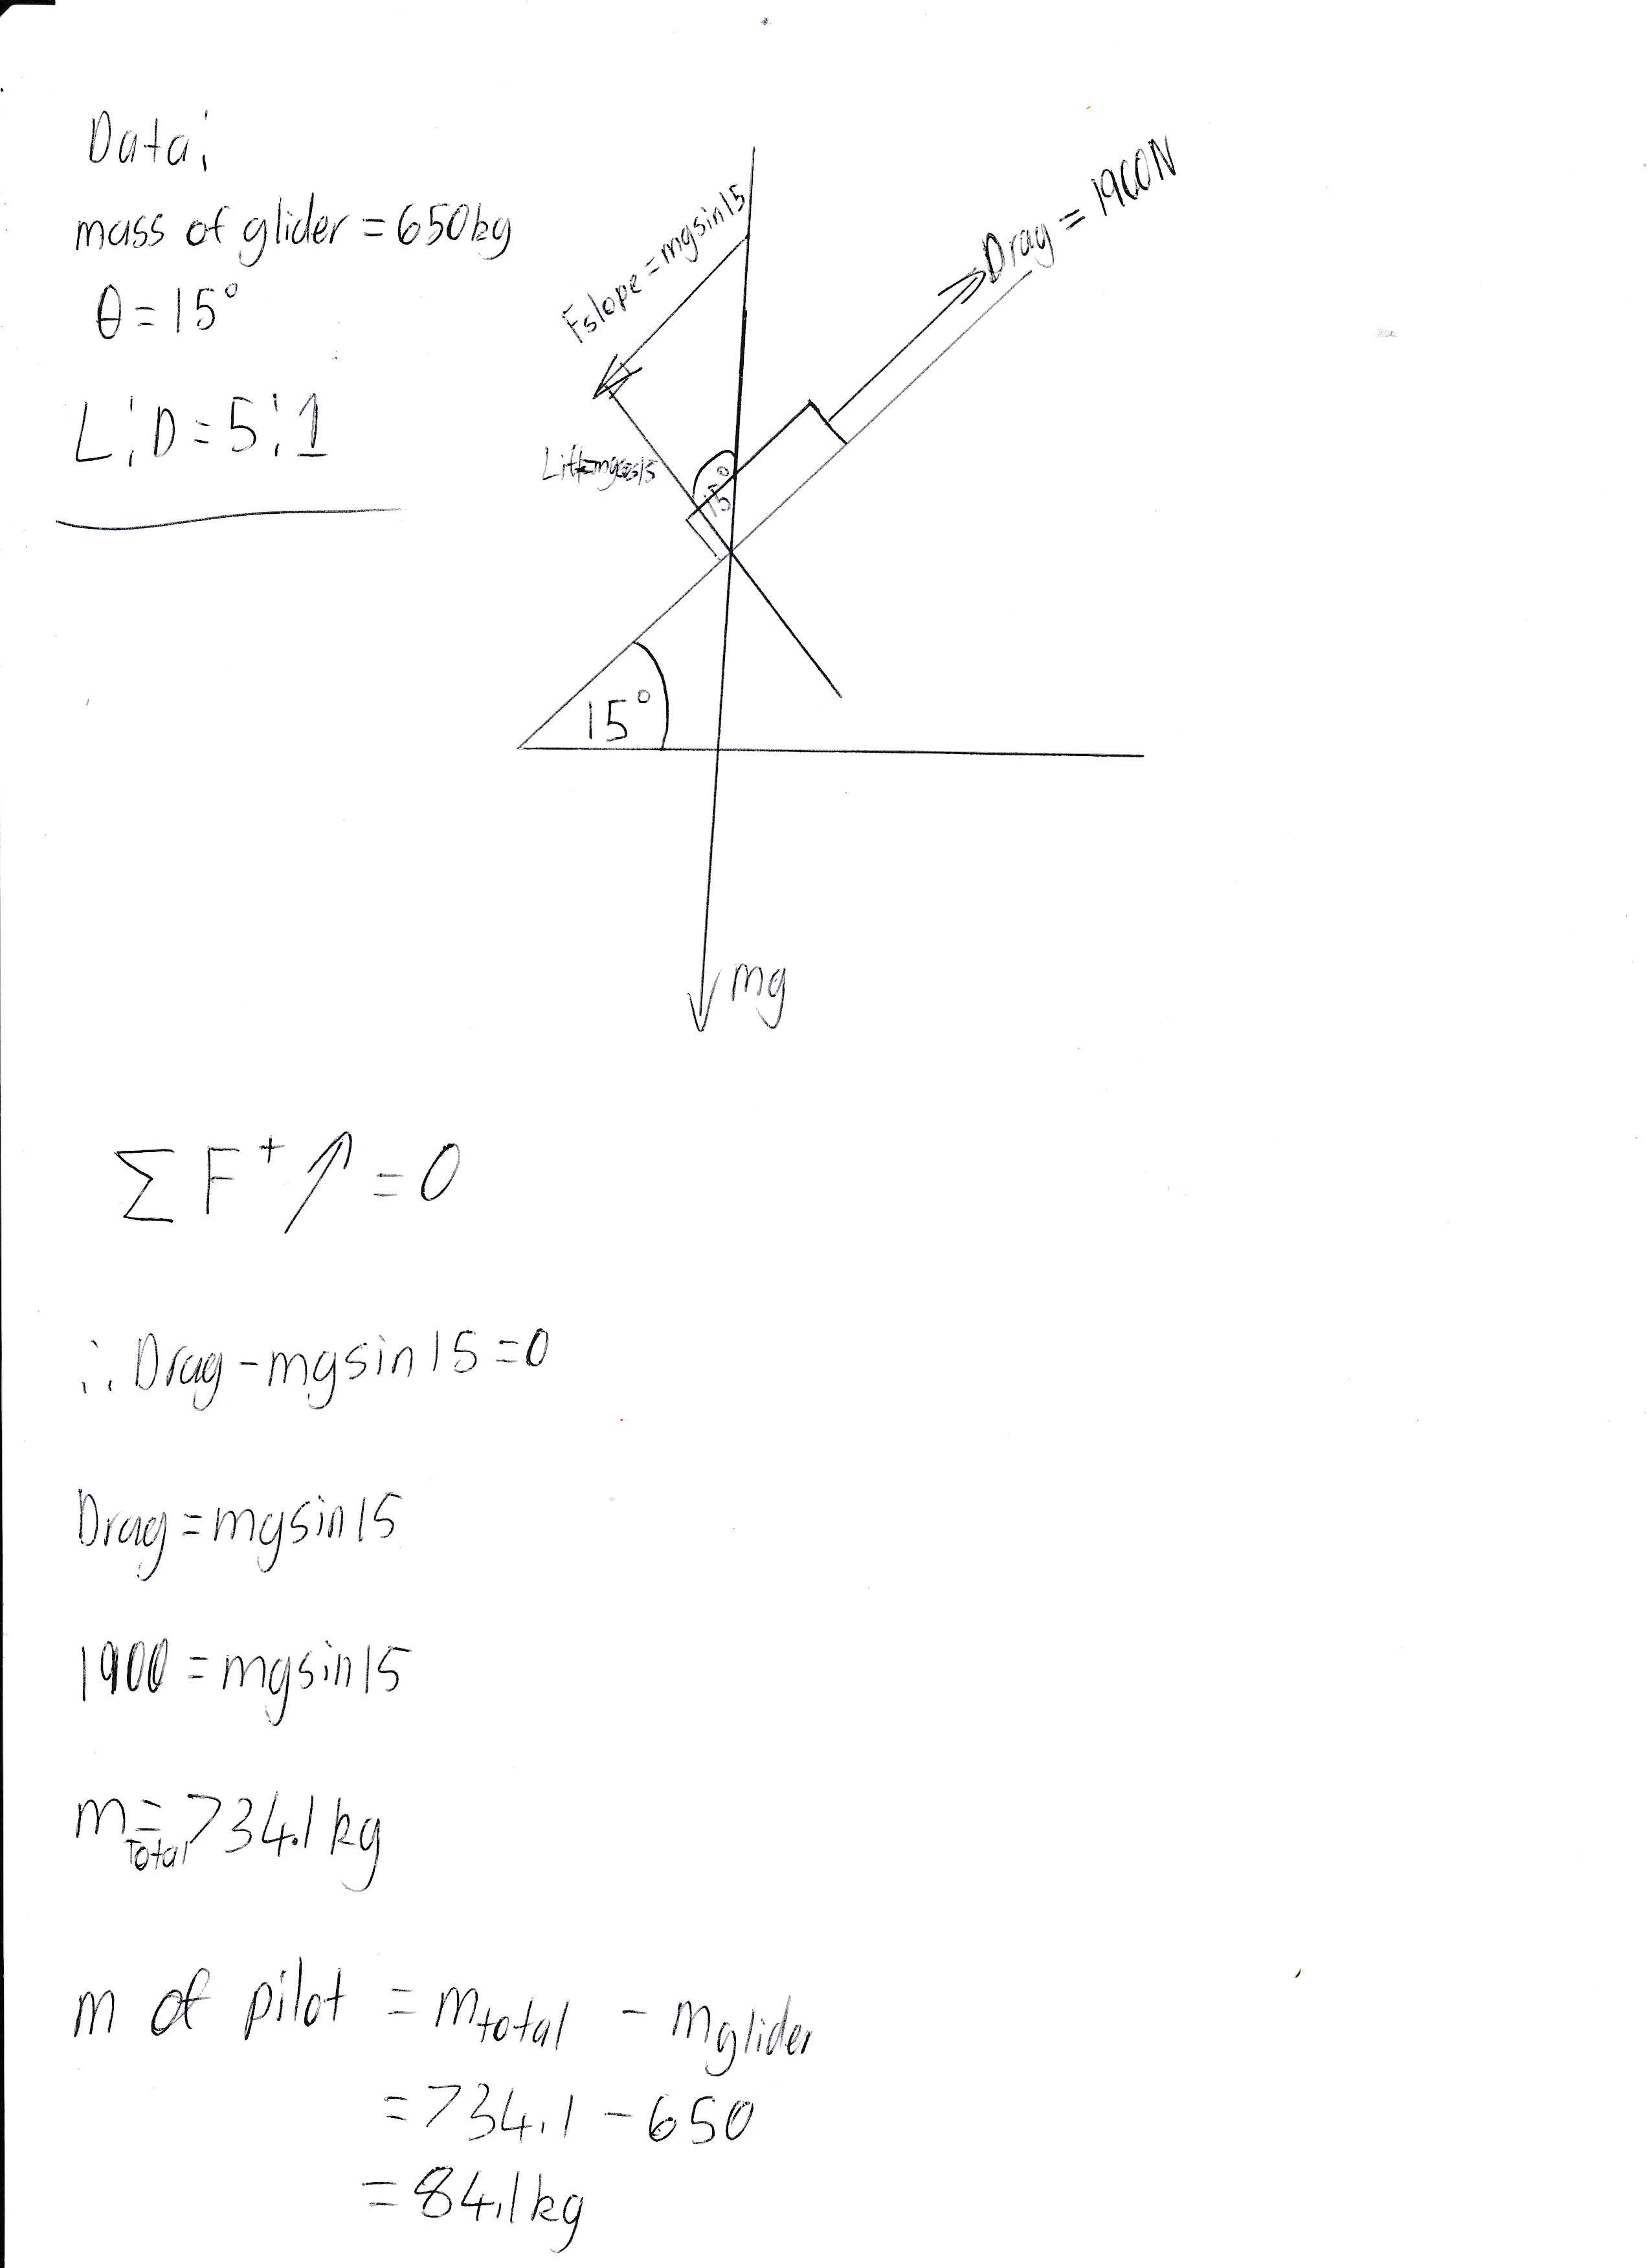 Data:
mass of glider = 650kg
θ = 15°
L:D = 5:1
Fslope = mgsin15
Drag = 1900N
Lift=mgcos15
15°
15°
mg
ΣF⁺↗ = 0
∴ Drag - mgsin15 = 0
Drag = mgsin15
1900 = mgsin15
mTotal = 734.1kg
m of pilot = mtotal - mglider
= 734.1 - 650
= 84.1kg